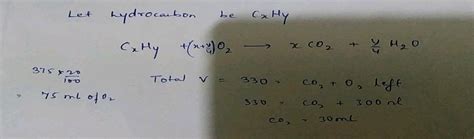 Let hydrocarbon be CxHy
CxHy +(x+y/4)O2 → x CO2 + y/4 H2O
375 × 20/100
= 75 ml of O2
Total V = 330 = CO2 + O2 left
330 = CO2 + 300 ml
CO2 = 30ml